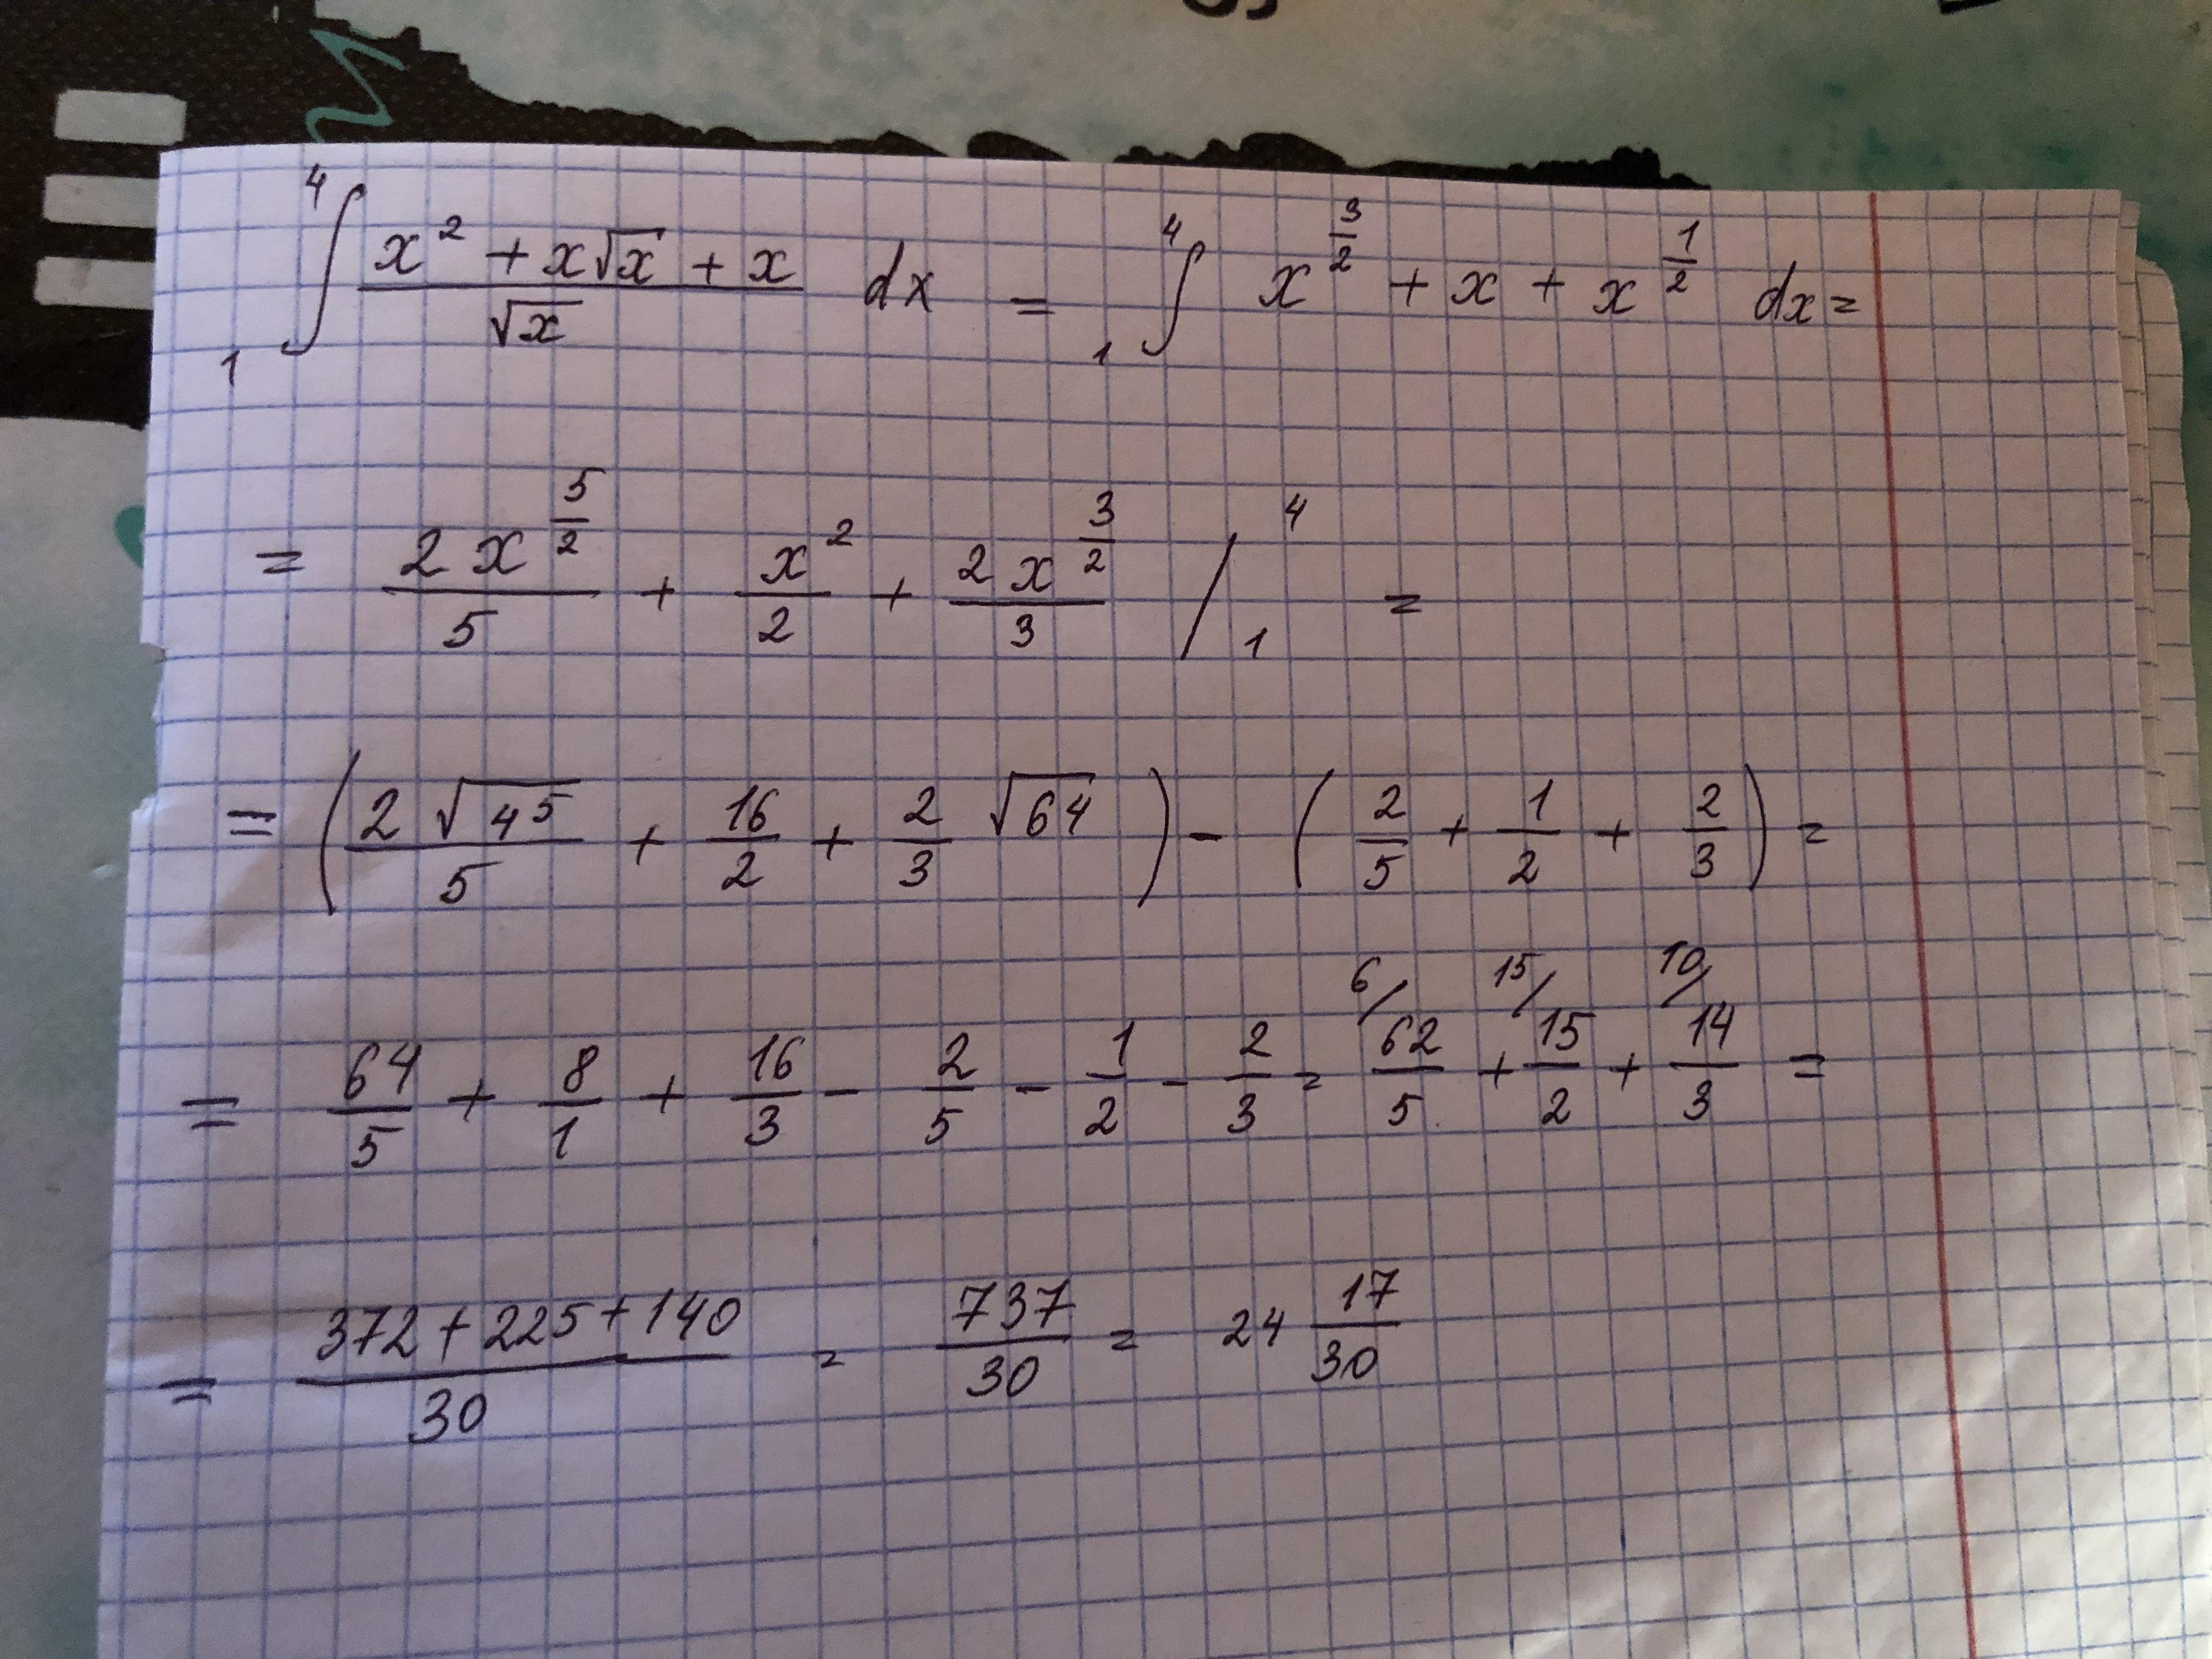 ∫₁⁴ (x² + x√x + x)/√x dx = ∫₁⁴ x^(3/2) + x + x^(1/2) dx =
= 2x^(5/2)/5 + x²/2 + 2x^(3/2)/3 /₁⁴ =
= (2√4⁵/5 + 16/2 + 2/3 √64) - (2/5 + 1/2 + 2/3) =
6/ 15/ 10/
= 64/5 + 8/1 + 16/3 - 2/5 - 1/2 - 2/3 = 62/5 + 15/2 + 14/3 =
= (372 + 225 + 140)/30 = 737/30 = 24 17/30